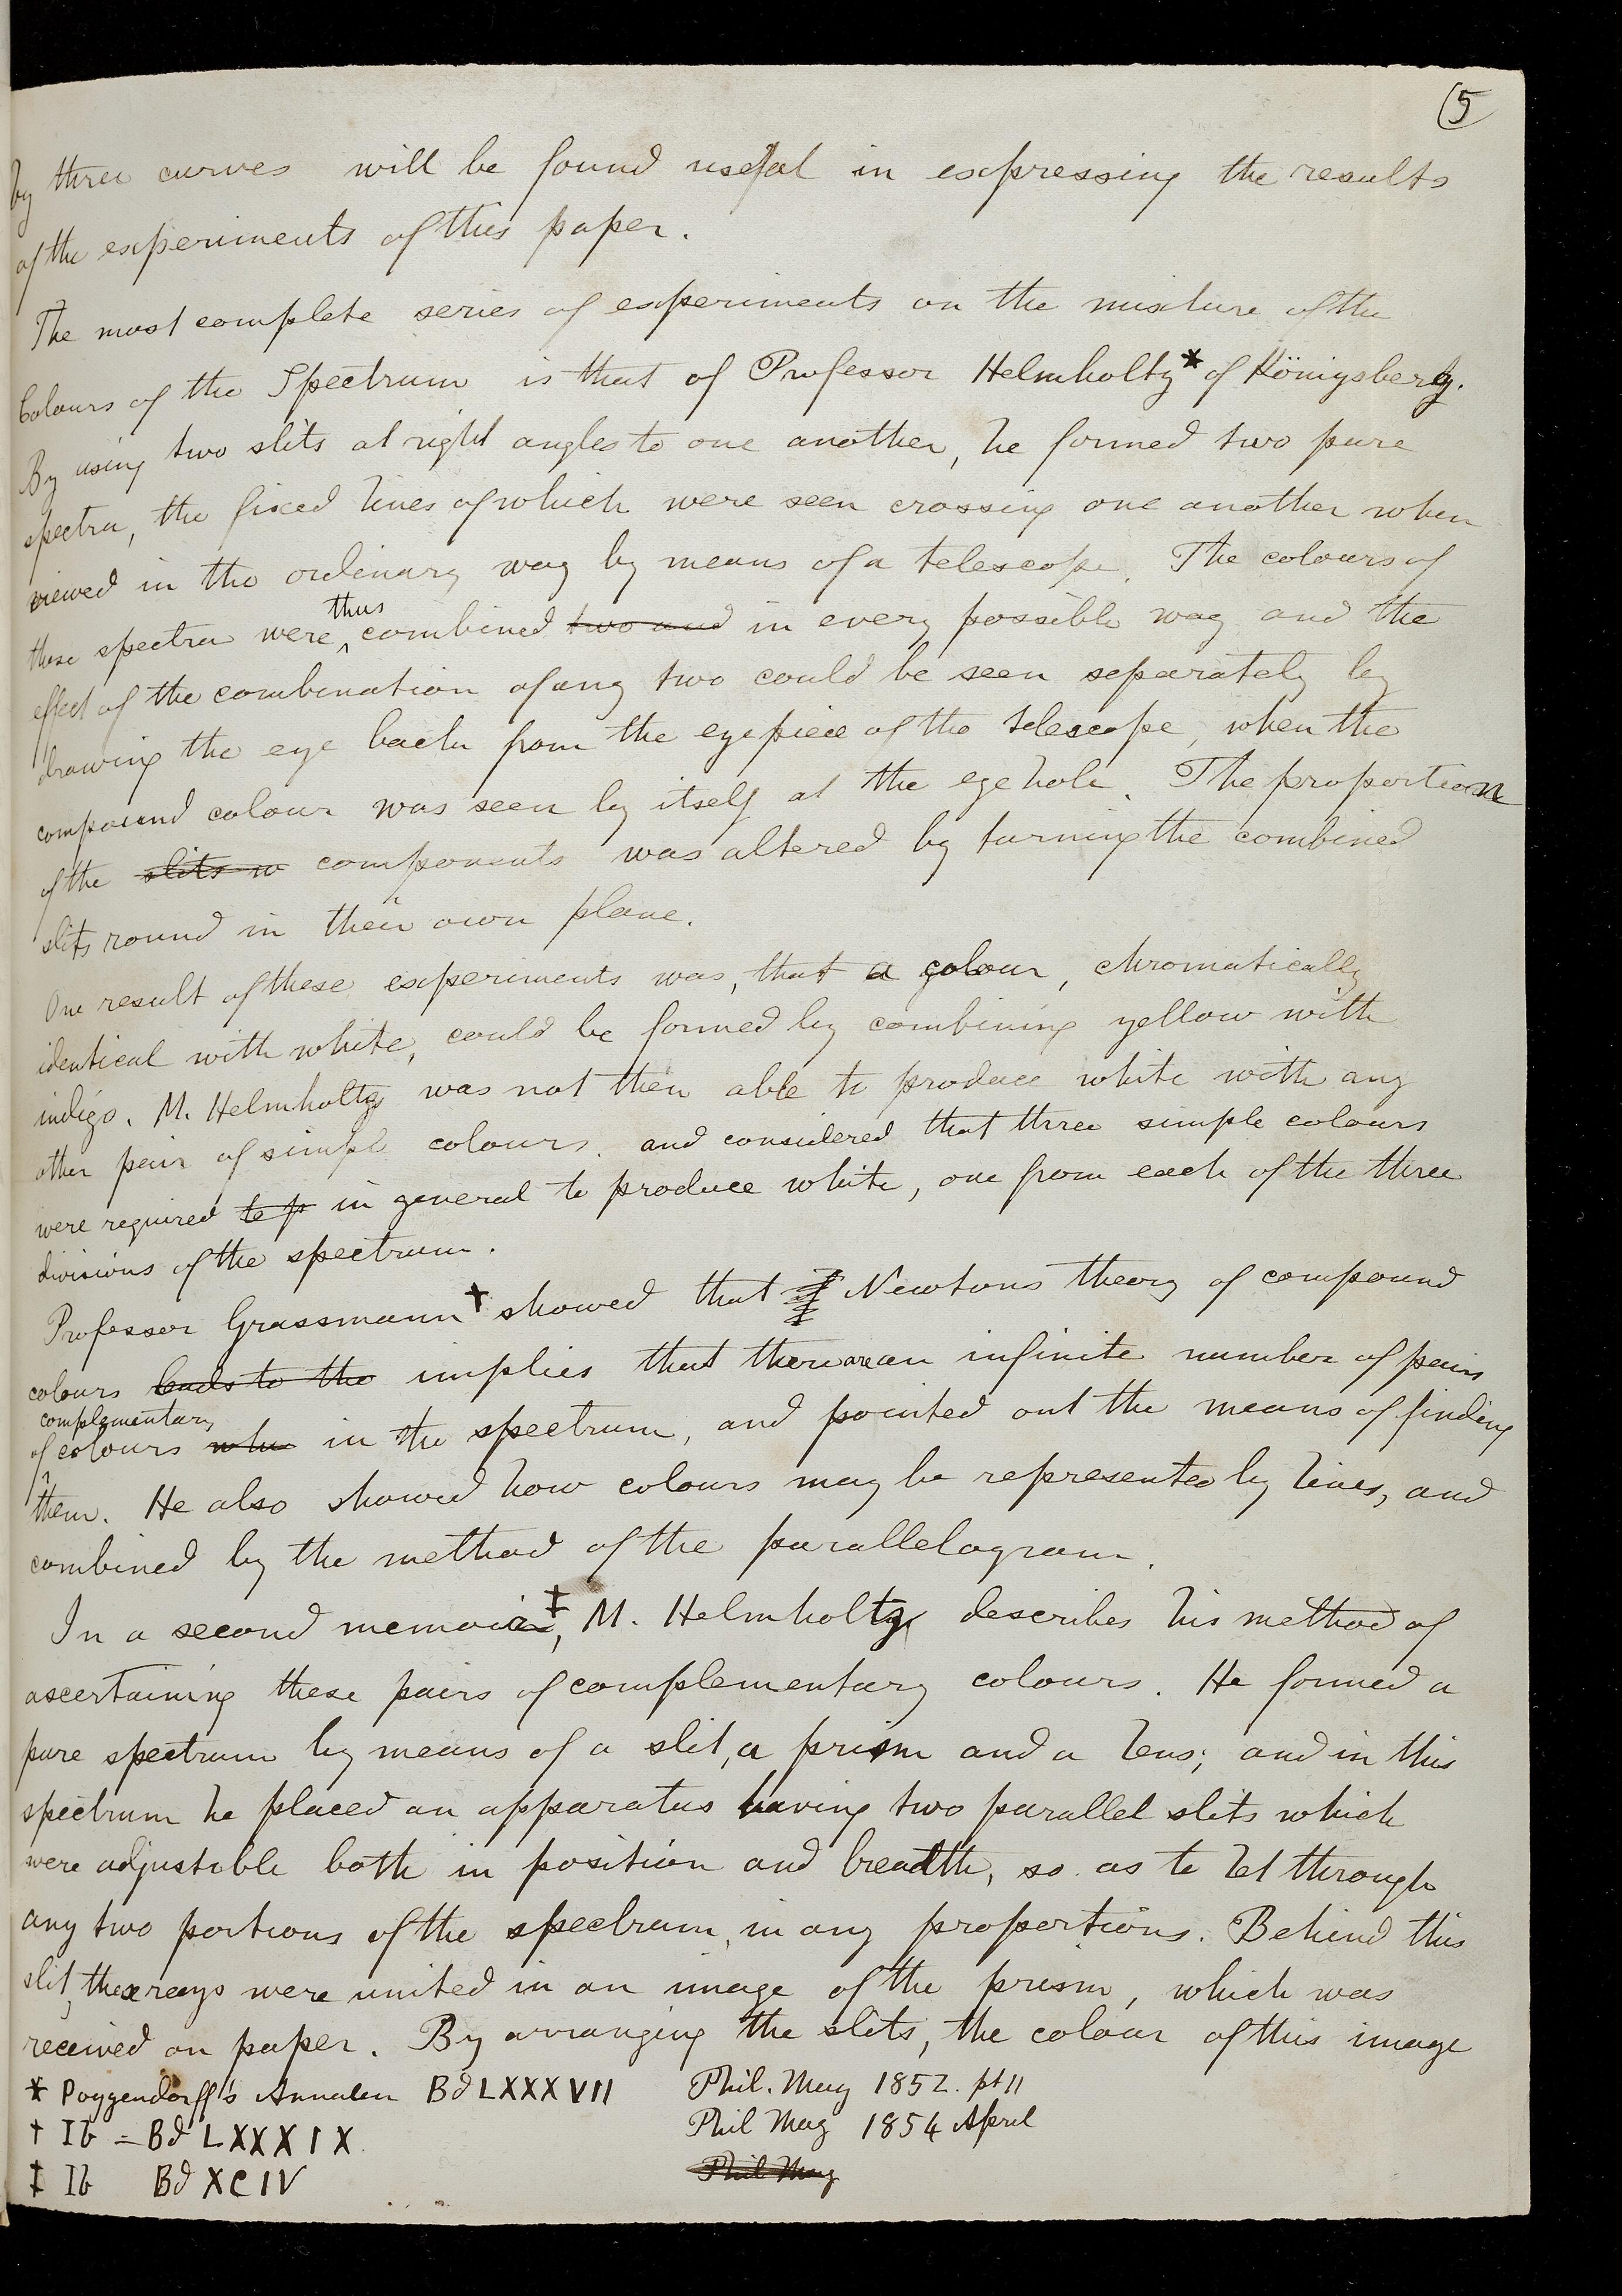 5
by three curves will be found useful in expressing the results
of the experiments of this paper.
The most complete series of experiments on the mixture of the
Colours of the Spectrum is that of Professor Helmholtz* of Königsberg.
By using two slits at right angles to one another, he formed two pure
spectra, the fixed lines of which were seen crossing one another when
viewed in the ordinary way by means of a telescope. The colours of
thus
these spectra were ‸ combined two and in every possible way and the
effect of the combination of any two could be seen separately by
drawing the eye back from the eyepiece of the telescope, when the
compound colour was seen by itself at the eye hole. The proportion
of the slits w components was altered by turning the combined
slits round in their own plane.
One result of these experiments was, that a colour, chromatically
identical with white, could be formed by combining yellow with
indigo. M. Helmholtz was not then able to produce white with any
other pair of simple colours, and considered that three simple colours
were required to p in general to produce white, one from each of the three
divisions of the spectrum.
Professor Grassmann† showed that Newtons theory of compound
colours leads to the implies that there are an infinite number of pairs
complementary
of ‸ colours whe in the spectrum, and pointed out the means of finding
them. He also showed how colours may be represented by lines, and
combined by the method of the parallelogram.
In a second memoir‡, M. Helmholtz describes his method of
ascertaining these pairs of complementary colours. He formed a
pure spectrum by means of a slit, a prism and a lens; and in this
spectrum he placed an apparatus having two parallel slits which
were adjustable both in position and breadth, so as to let through
any two portions of the spectrum, in any proportions. Behind this
slit, these rays were united in an image of the prism, which was
received on paper. By arranging the slits, the colour of this image
* Poggendorff's Annalen Bd LXXXVII Phil. Mag 1852. pt II
† Ib = Bd LXXXIX Phil Mag 1854 April
‡ Ib Bd XCIV Phil Mag